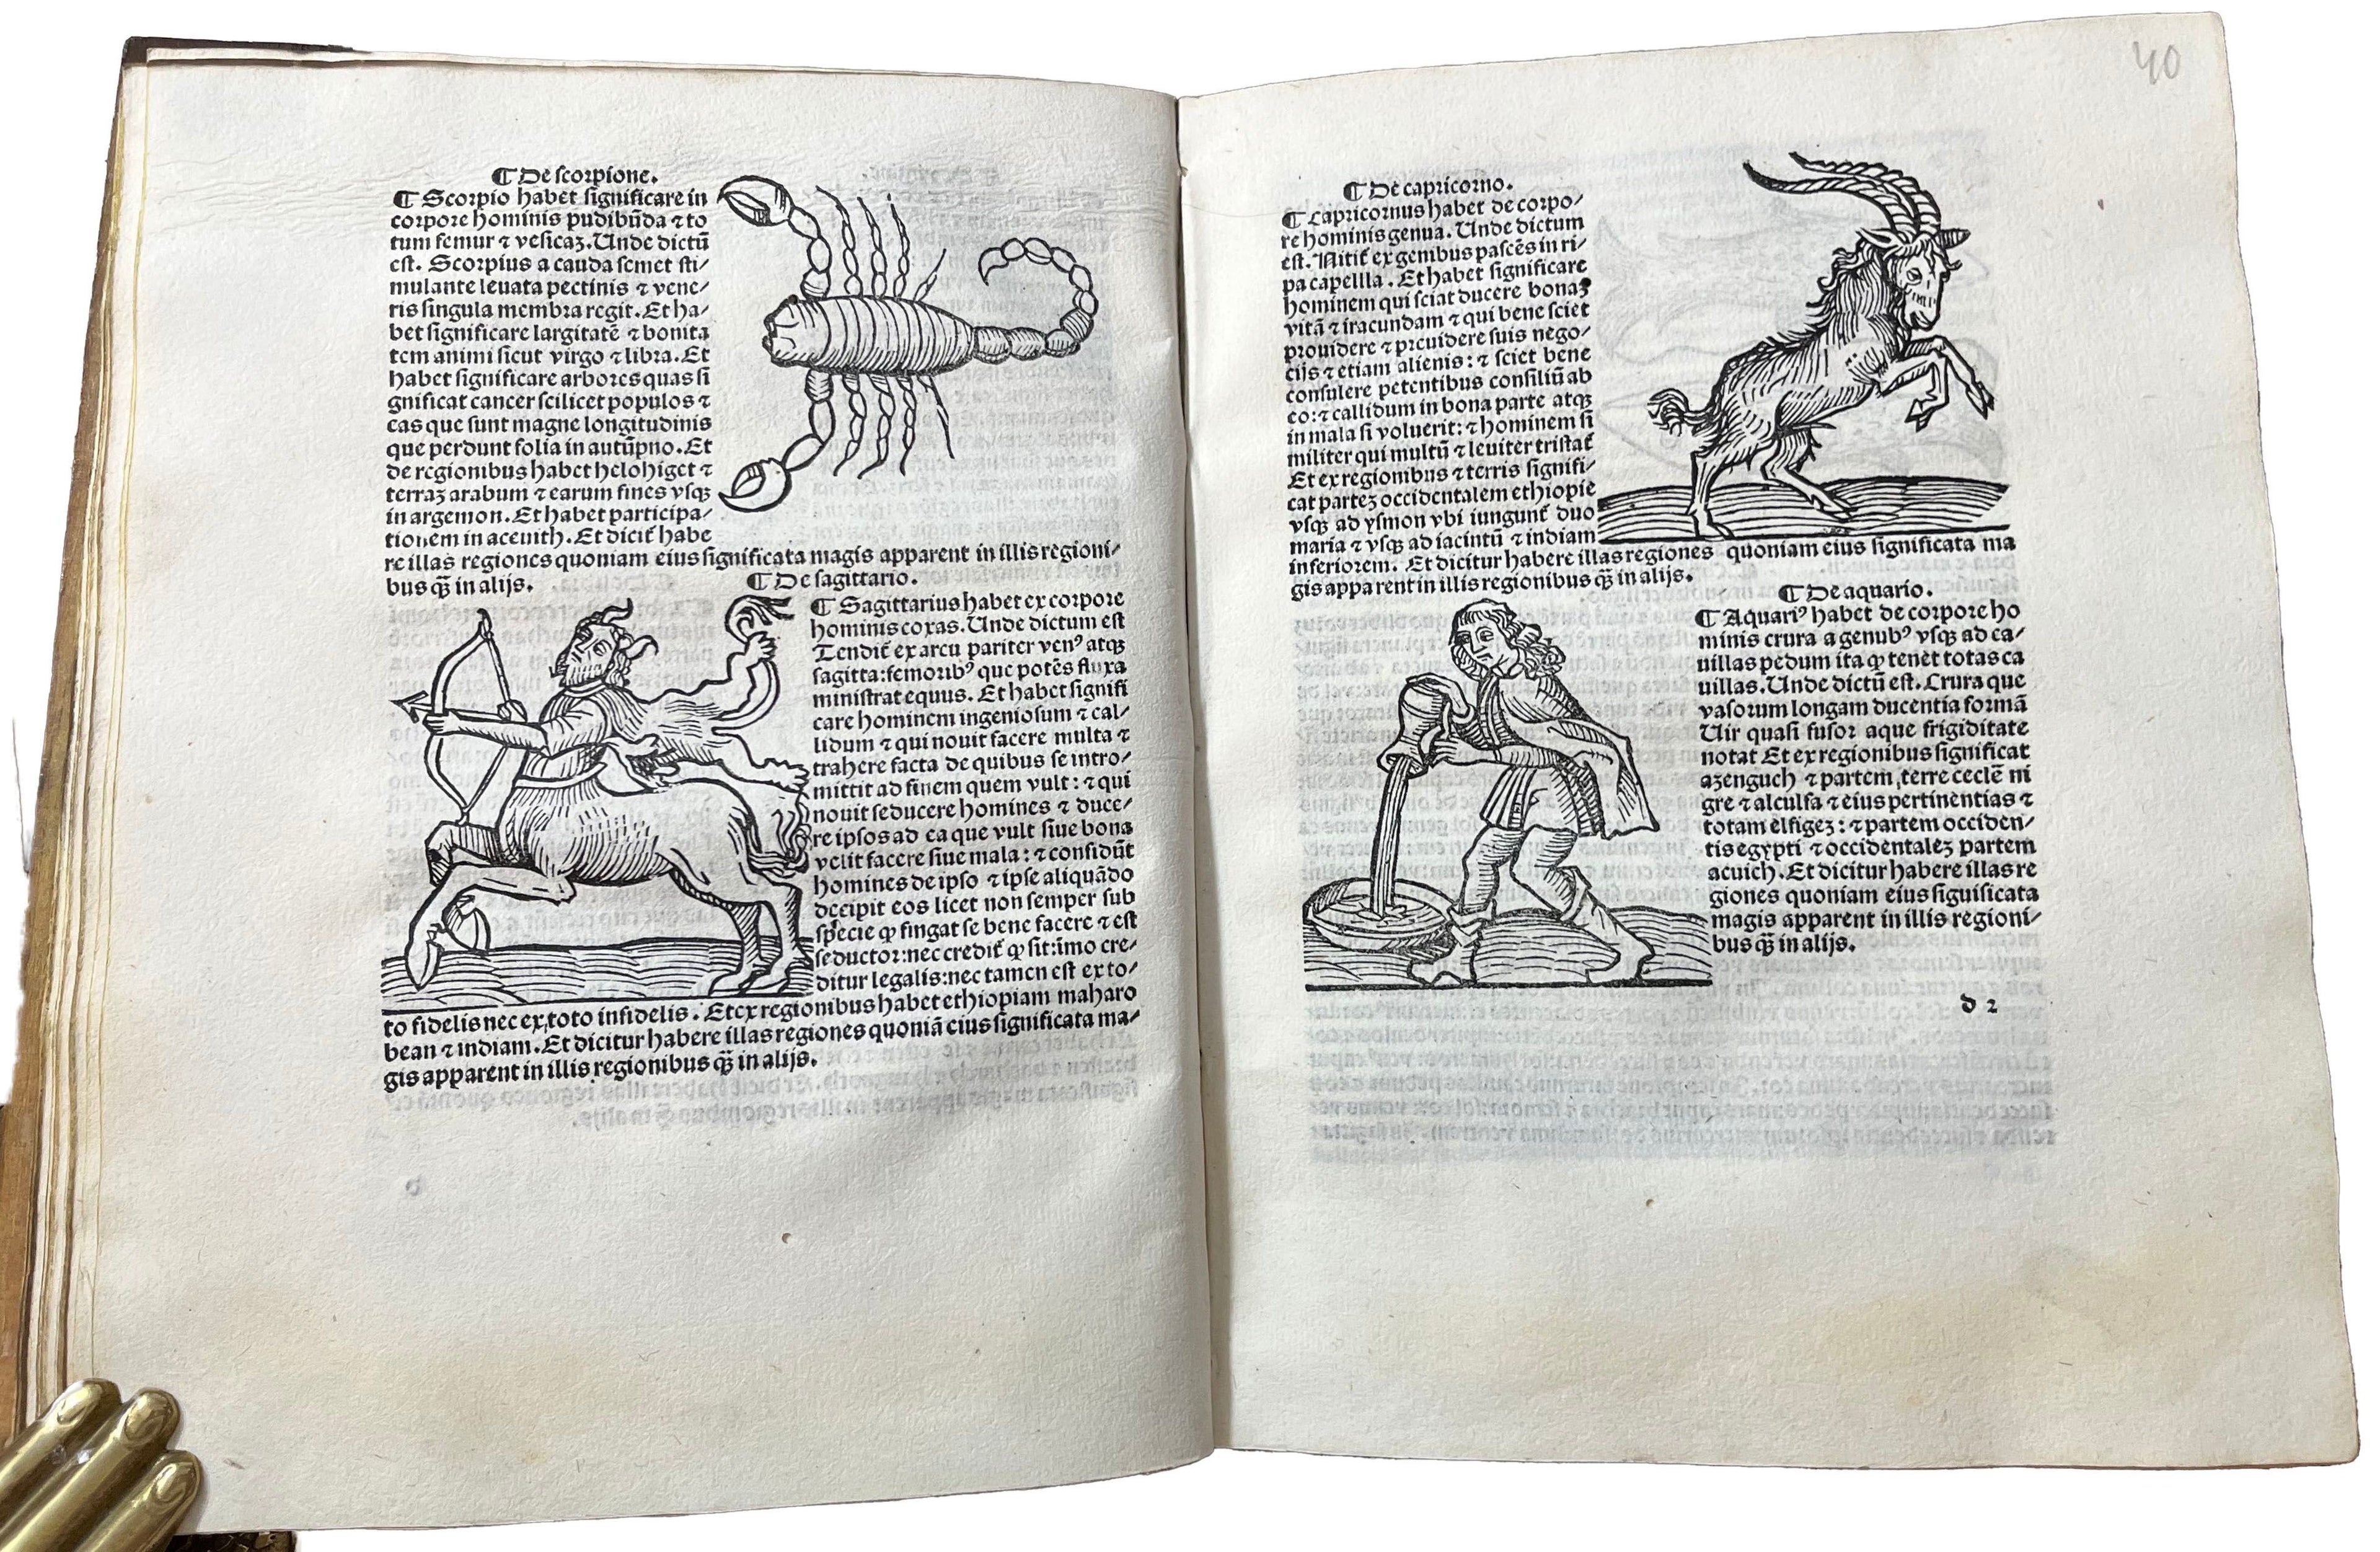 ¶ De scorpione.
¶ Scorpio habet significare in
corpore hominis pudibũda ⁊ to
tum femur ⁊ vesicaꝫ. Unde dictũ
est. Scorpius a cauda semet sti⸗
mulante leuata pectinis ⁊ vene⸗
ris singula membra regit. Et ha⸗
bet significare largitatẽ ⁊ bonita
tem animi sicut virgo ⁊ libra. Et
habet significare arbores quas si
gnificat cancer scilicet populos ⁊
eas que sunt magne longitudinis
que perdunt folia in autũpno. Et
de regionibus habet helohiget ⁊
terraꝫ arabum ⁊ earum fines vsqꝫ
in argemon. Et habet participa⸗
tionem in aceuith. Et dicit̃ habe
re illas regiones quoniam eius significata magis apparent in illis regioni⸗
bus q̃ꝫ in alijs.
¶ De sagittario.
¶ Sagittarius habet ex corpore
hominis coxas. Unde dictum est
Tendit̃ ex arcu pariter venꝰ atqꝫ
sagitta: femoribꝰ que potẽs fluxa
ministrat equus. Et habet signifi
care hominem ingeniosum ⁊ cal⸗
lidum ⁊ qui nouit facere multa ⁊
trahere facta de quibus se intro⸗
mittit ad finem quem vult: ⁊ qui
nouit seducere homines ⁊ duce⸗
re ipsos ad ea que vult siue bona
velit facere siue mala: ⁊ confidũt
homines de ipso ⁊ ipse aliquãdo
decipit eos licet non semper sub
specie ꝙ fingat se bene facere ⁊ est
seductor: nec credit̃ ꝙ sit: imo cre⸗
ditur legalis: nec tamen est ex to⸗
to fidelis nec ex toto infidelis. Et ex regionibus habet ethiopiam maharo
bean ⁊ indiam. Et dicitur habere illas regiones quoniã eius significata ma⸗
gis apparent in illis regionibus q̃ꝫ in alijs.
40
¶ De capricorno.
¶ Capricornus habet de corpo⸗
re hominis genua. Unde dictum
est. Nitit̃ ex genibus pascẽs in ri⸗
pa capellla. Et habet significare
hominem qui sciat ducere bonaꝫ
vitã ⁊ iracundam ⁊ qui bene sciet
prouidere ⁊ preuidere suis nego⸗
cijs ⁊ etiam alienis: ⁊ sciet bene
consulere petentibus consiliũ ab
eo: ⁊ callidum in bona parte atqꝫ
in mala si voluerit: ⁊ hominem si
militer qui multũ ⁊ leuiter tristat̃
Et ex regionibus ⁊ terris signifi⸗
cat parteꝫ occidentalem ethiopie
vsqꝫ ad ysmon vbi iungunt̃ duo
maria ⁊ vsqꝫ ad iacintũ ⁊ indiam
inferiorem. Et dicitur habere illas regiones quoniam eius significata ma
gis apparent in illis regionibus q̃ꝫ in alijs.
¶ De aquario.
¶ Aquariꝰ habet de corpore ho
minis crura a genubꝰ vsqꝫ ad ca⸗
uillas pedum ita ꝙ tenet totas ca
uillas. Unde dictũ est. Crura que
vasorum longam ducentia formã
Uir quasi fusor aque frigiditate
notat Et ex regionibus significat
azenguch ⁊ partem terre ceclẽ ni
gre ⁊ alculfa ⁊ eius pertinentias ⁊
totam elfigeꝫ: ⁊ partem occiden⸗
tis egypti ⁊ occidentaleꝫ partem
acuich. Et dicitur habere illas re
giones quoniam eius siguificata
magis apparent in illis regioni⸗
bus q̃ꝫ in alijs.
d 2